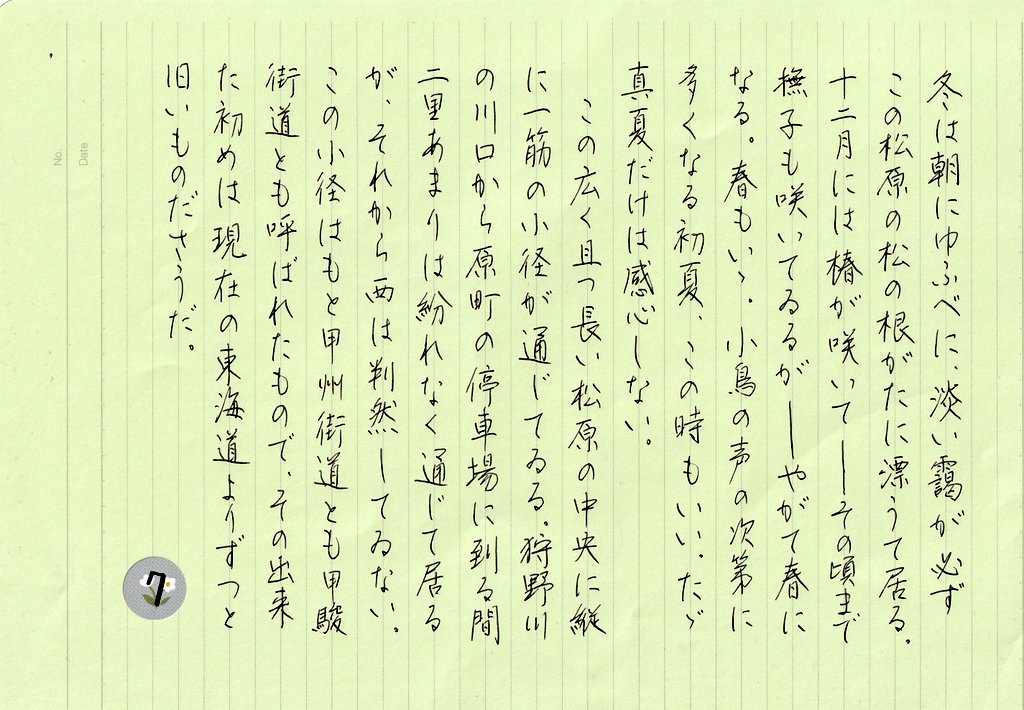 冬は朝にゆふべに、淡い靄が必ず
この松原の松の根がたに漂うて居る。
十二月には椿が咲いて――その頃まで
撫子も咲いてゐるが――やがて春に
なる。春もいゝ。小鳥の声の次第に
多くなる初夏、この時もいい。たゞ
真夏だけは感心しない。
この広く且つ長い松原の中央に縦
に一筋の小径が通じてゐる。狩野川
の川口から原町の停車場に到る間
二里あまりは紛れなく通じて居る
が、それから西は判然してゐない。
この小径はもと甲州街道とも甲駿
街道とも呼ばれたもので、その出来
た初めは現在の東海道よりずつと
旧いものださうだ。
7
No.
Date